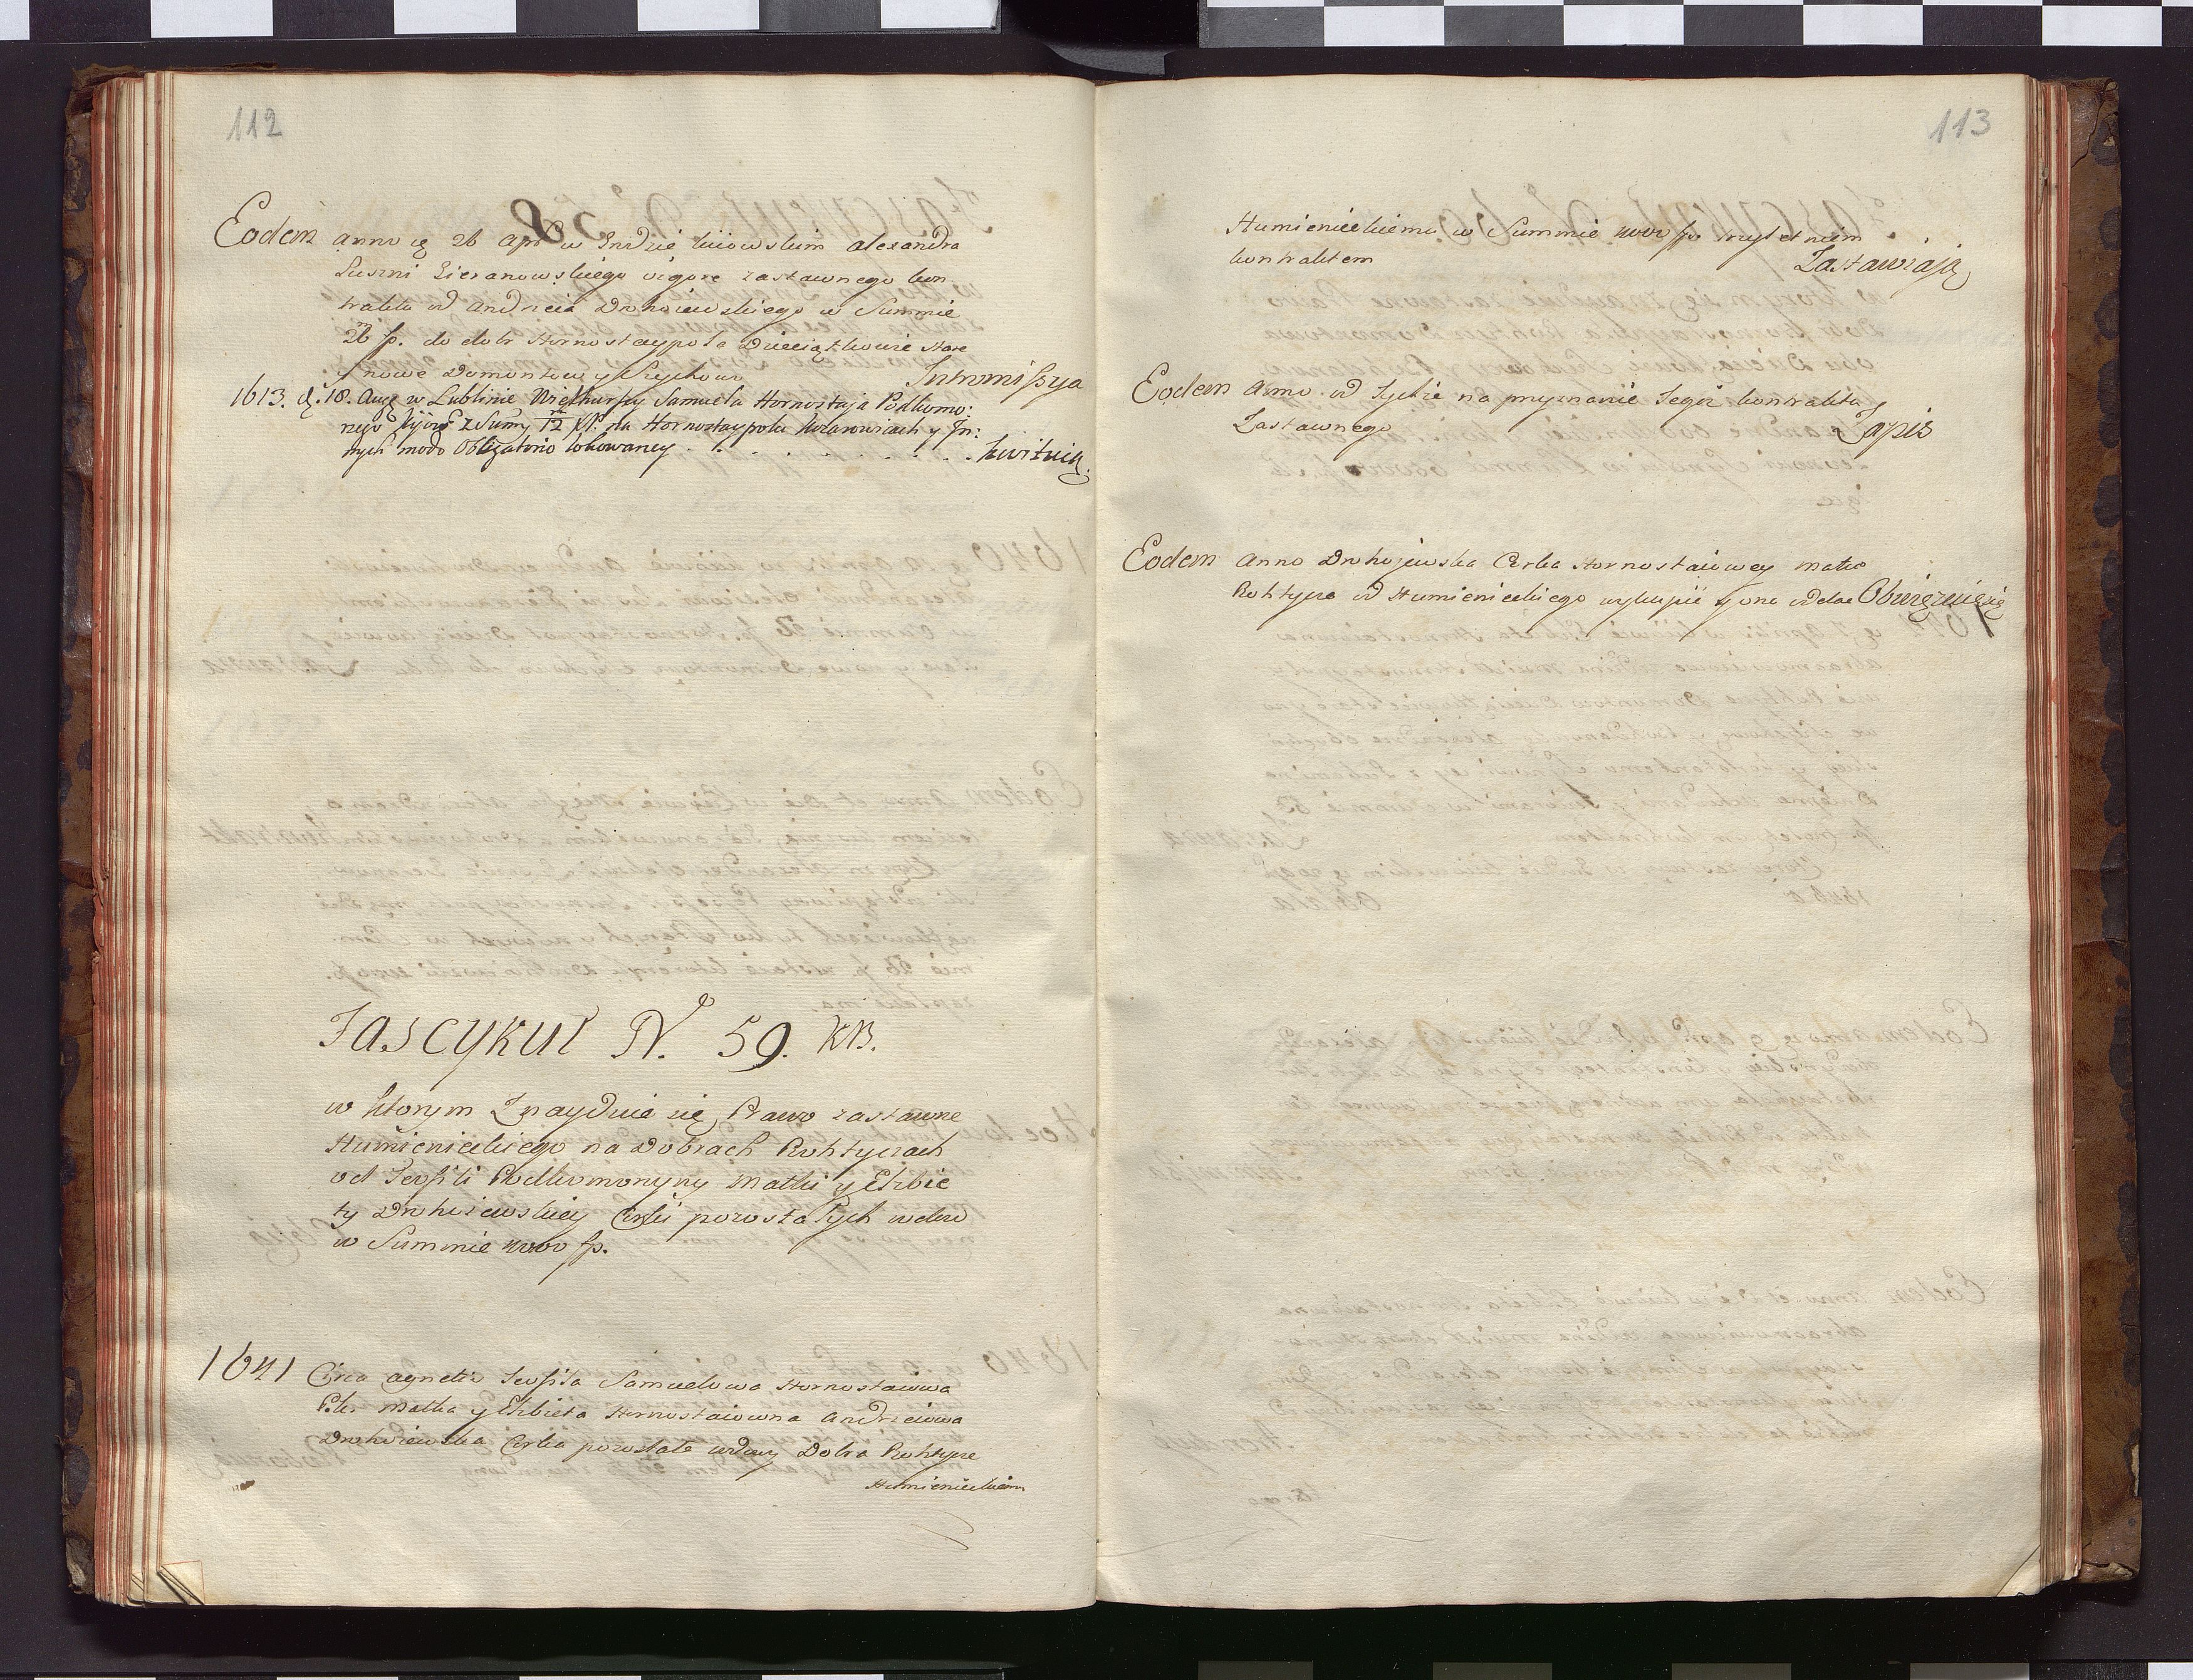 112
Eodem anno q 26 Apr w Grodzie kiiowskim Alexandra
Suszni Sieranowskiego vigore zastawnego kon
traktu od Andrzeia Drohoiewskiego w Summie
26 m fp. do dobr Hornostaypola Dzieciątkowie stare
y nowe Domontow y Szychow Intromissya
1613. d. 18. Aug w Lublinie Wielhurski Samuela Hornostaja Podkomo:
rego Kijow z Sumy 12 m na Hornostaypolu Kozarowiczach y In:
nych modo obligatorio lokowaney . . . . . . . . . Kwituie.
Fascykuł N. 59. KB.
w ktorym Znayduie się Prawo zastawne
Humienieckiego na Dobrach Rohtyczach
od Teofili Podkomorzyny Matki y Elzbie
ty Drohoiewskiey Corki pozostałych wdow
w Summie 4000 fp.
1641 Circa Agnetis Teofila Samuelowa Hornostaiowa
P.K. Matka y Elzbieta Hornostaiowna Andrzeiowa
Drohoiewska Corka pozostałe wdowy Dobra Rohtycze
Humienieckiem
113
Humienieckiemu w Summie 4000 fp. trzyletnim
kontraktem Zastawiaią
Eodem Anno od Tychże na przyznanie tegoż kontraktu
Zastawnego Zapis
Eodem Anno Drohojewska Corka Hornostaiowey matce
Rohtycze od Humienieckiego wykupić y one oddać Obwięzuie się